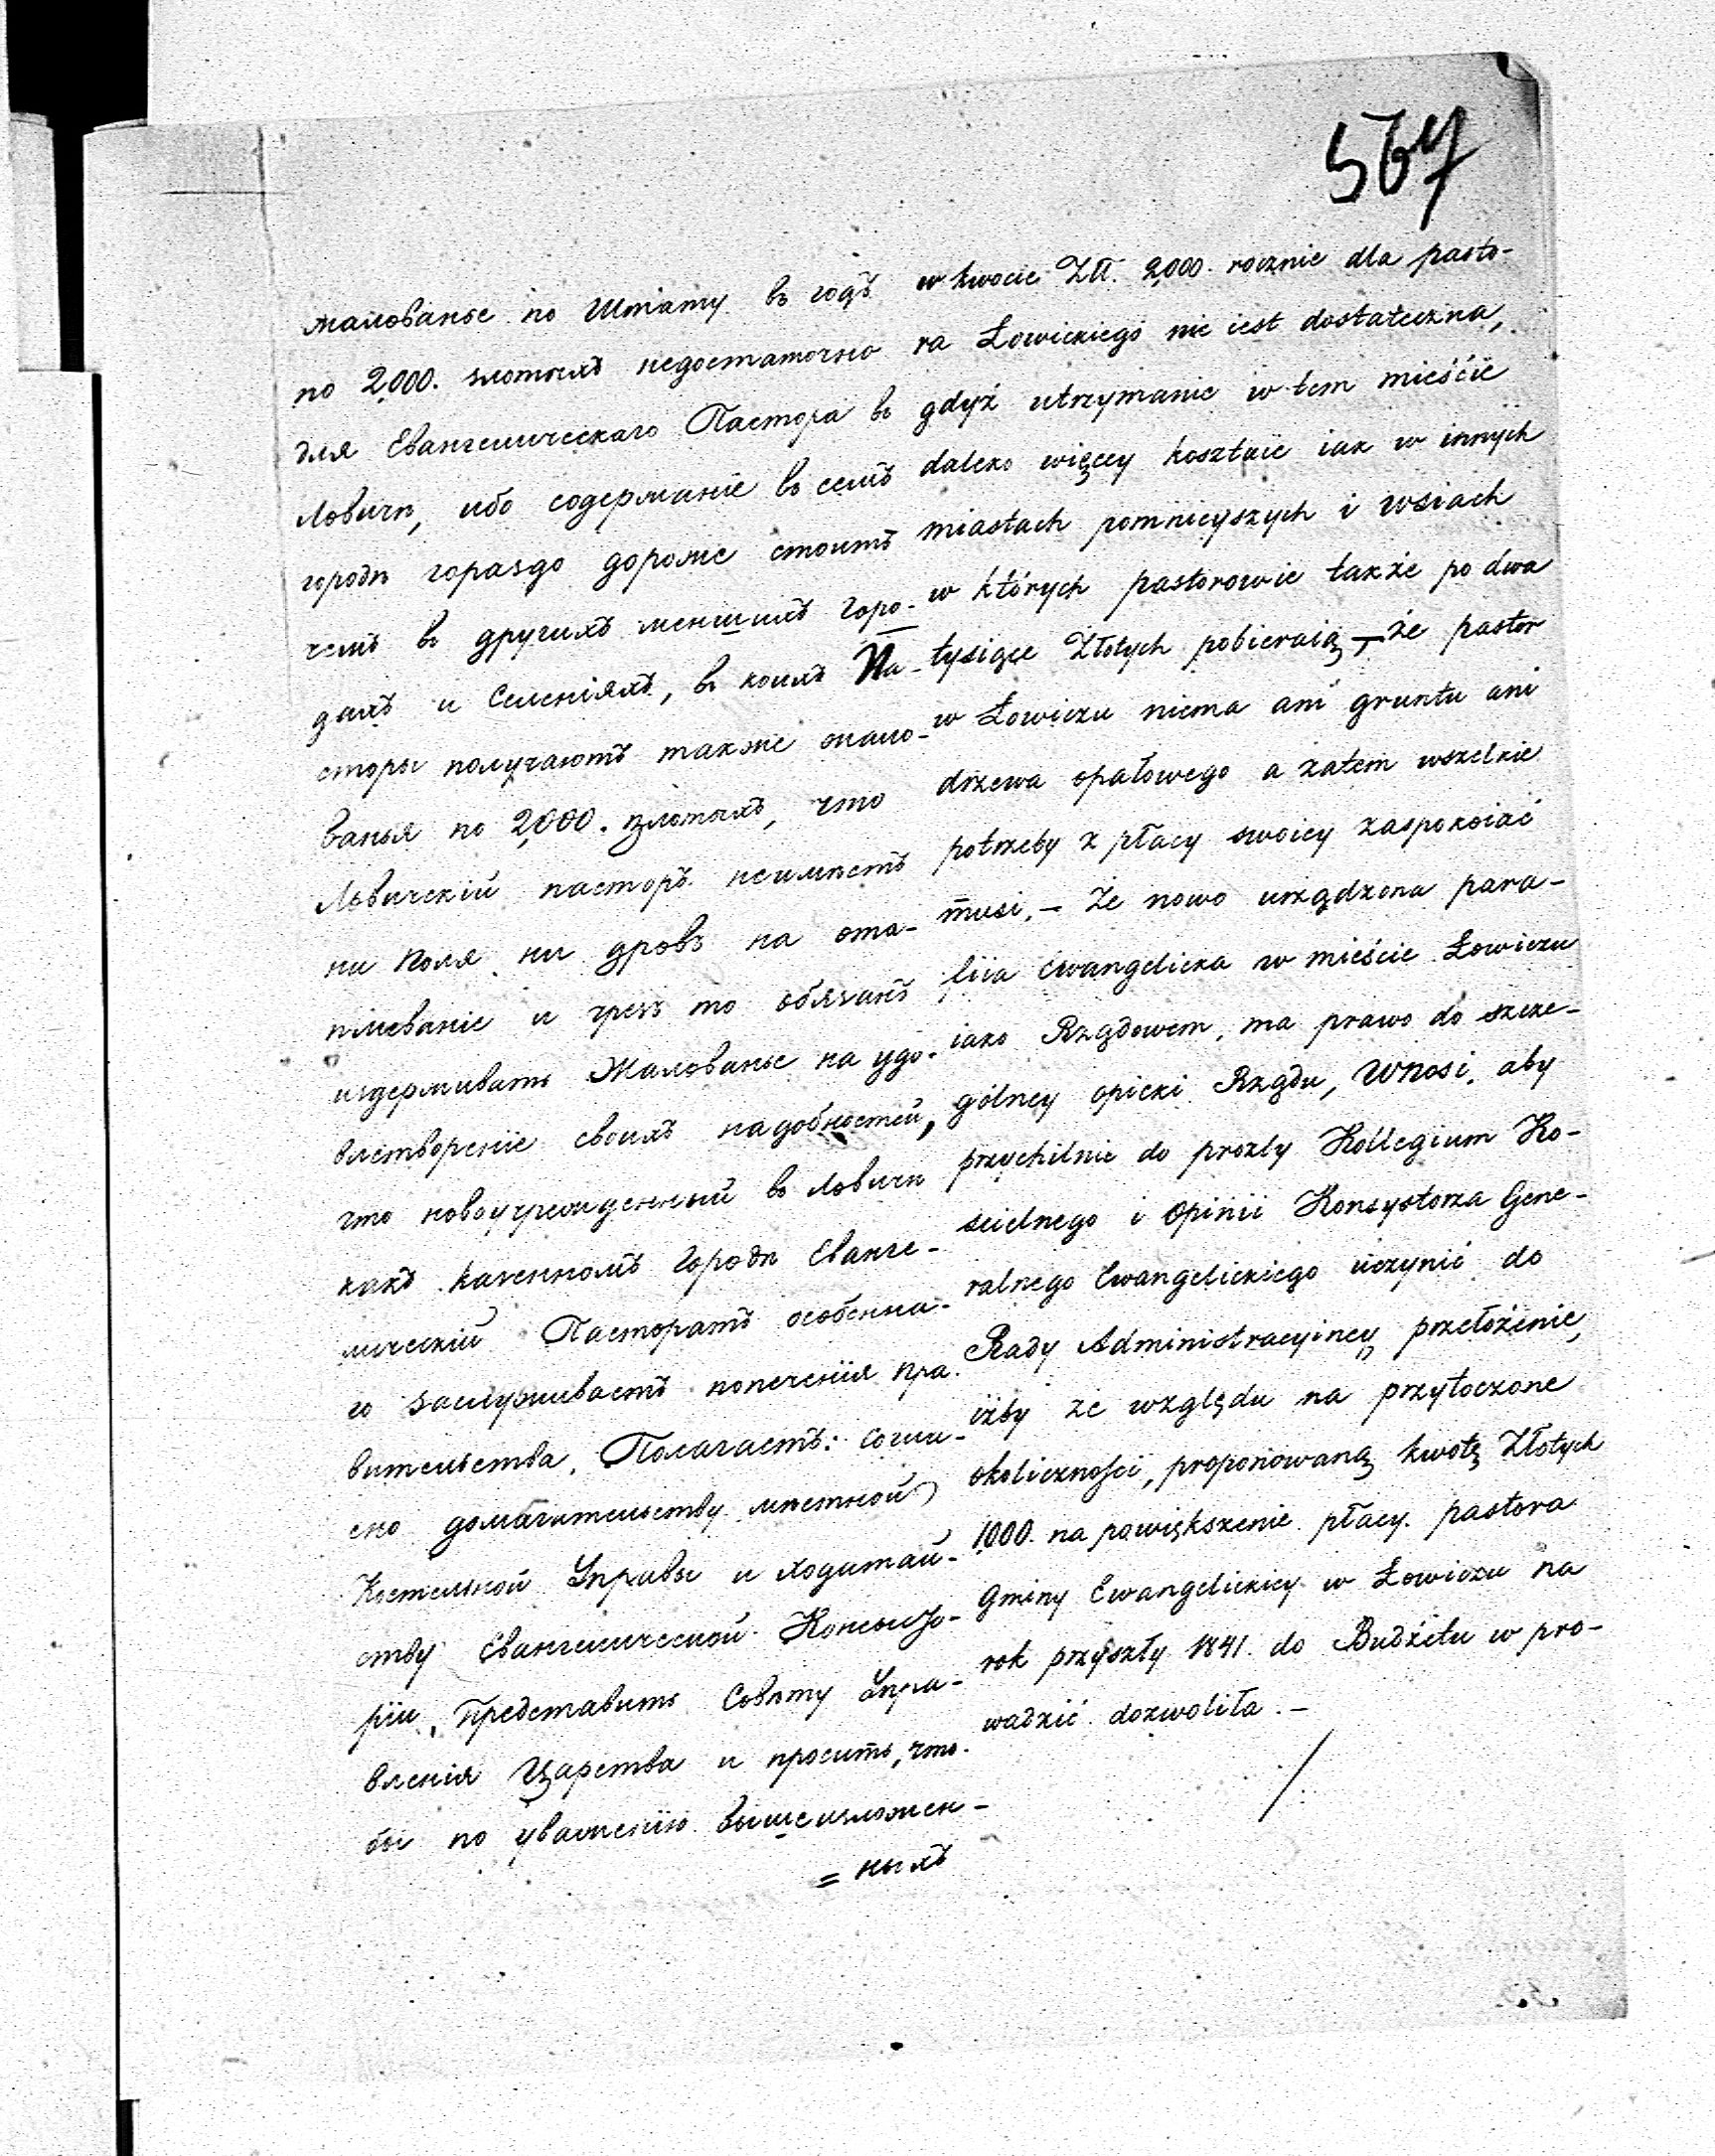 567
жалованье по Штату въ годъ
по 2,000. злотыхъ недостаточно
для Евангелическаго Пастора въ
Ловичѣ, ибо содержаніе въ семъ
городѣ гораздо дороже стоитъ
чемъ въ другихъ меншихъ горо-
дахъ и Селеніяхъ, въ коихъ Па-
сторы получаютъ также жало-
ванья по 2,000. злотыхъ, что
Ловичскій пасторъ неимѣетъ
ни поля ни дровъ на ото-
пливаніе и чрезъ то обязанъ
издерживать Жалованье на удо-
влетвореніе своихъ надобностей,
что новоучрежденный въ Ловичѣ
какъ казенномъ Городѣ Еванге-
лическій Пасторатъ особенна-
го заслуживаетъ попеченія пра-
вительства, Полагаетъ: согла-
сно домагательству мѣстной
Костельной Управы и ходатай-
ству Евангелической Консисто-
ріи, Представить Совѣту Упра-
вленія Царства и просить, что-
бы по уваженію вышеизложен-
= ныхъ
w kwocie Złł. 2,000. rocznie dla pasto-
ra Łowickiego nie iest dostateczna,
gdyż utrzymanie w tem mieście
daleko więcey kosztuie iak w innych
miastach pomnieyszych i wsiach
w których pastorowie także po dwa
tysiące Złotych pobieraią, – że pastor
w Łowiczu niema ani gruntu ani
drzewa opałowego a zatem wszelkie
potrzeby z płacy swoiey zaspokoiać
musi. – Że nowo urządzona para-
fiia ewangelicka w mieście Łowiczu
iako Rządowem, ma prawo do szcze-
gólney opieki Rządu, Wnosi, aby
przychilnie do prozby Kollegium Ko-
scielnego i opinii Konsystorza Gene-
ralnego Ewangelickiego uczynić do
Rady Administracyiney przełożenie,
iżby ze względu na przytoczone
okoliczności, proponowaną kwotę Złotych
1,000. na powiększenie płacy pastora
Gminy Ewangelickiey w Łowiczu na
rok przyszły 1841. do Budżetu w pro-
wadzić dozwoliła. –